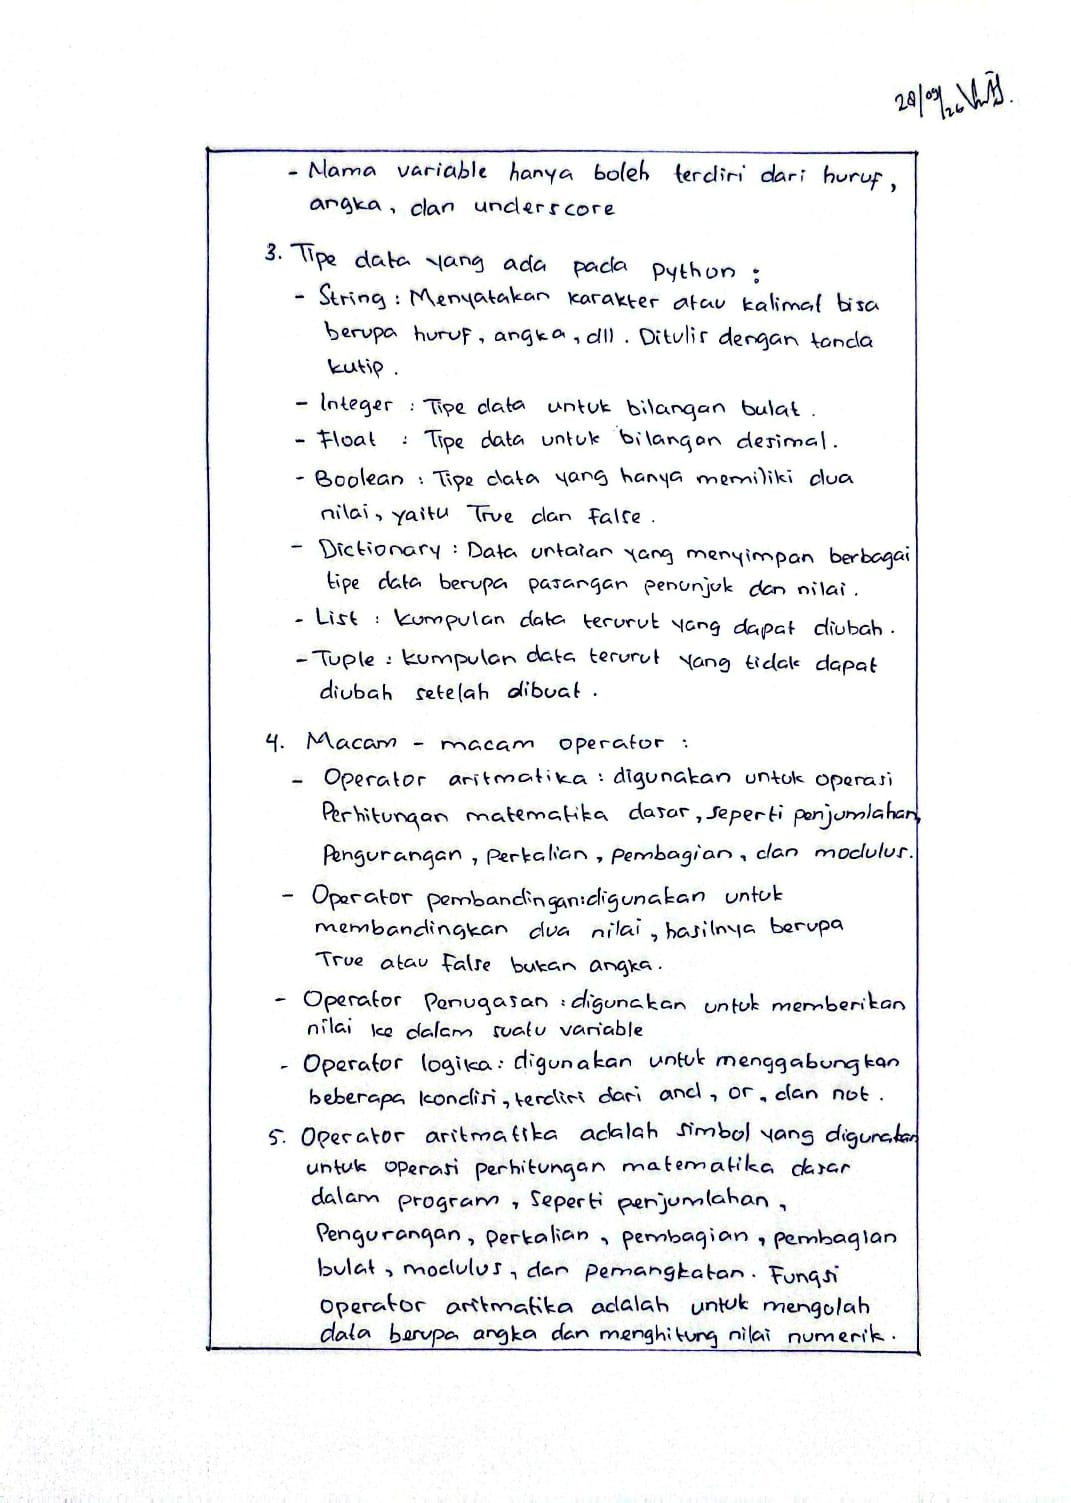 28/09/26
- Nama variable hanya boleh terdiri dari huruf,
angka, dan underscore
3. Tipe data yang ada pada python :
- String : Menyatakan karakter atau kalimat bisa
berupa huruf, angka, dll. Ditulis dengan tanda
kutip.
- Integer : Tipe data untuk bilangan bulat.
- Float : Tipe data untuk bilangan desimal.
- Boolean : Tipe data yang hanya memiliki dua
nilai, yaitu True dan False.
- Dictionary : Data untaian yang menyimpan berbagai
tipe data berupa pasangan penunjuk dan nilai.
- List : kumpulan data terurut yang dapat diubah.
- Tuple : kumpulan data terurut yang tidak dapat
diubah setelah dibuat.
4. Macam - macam operator :
- Operator aritmatika : digunakan untuk operasi
Perhitungan matematika dasar, seperti penjumlahan,
Pengurangan, perkalian, pembagian, dan modulus.
- Operator pembandingan:digunakan untuk
membandingkan dua nilai, hasilnya berupa
True atau False bukan angka.
- Operator Penugasan : digunakan untuk memberikan
nilai ke dalam suatu variable
- Operator logika : digunakan untuk menggabungkan
beberapa kondisi, terdiri dari and, or, dan not.
5. Operator aritmatika adalah simbol yang digunakan
untuk operasi perhitungan matematika dasar
dalam program, seperti penjumlahan,
Pengurangan, perkalian, pembagian, pembagian
bulat, modulus, dan pemangkatan. Fungsi
operator aritmatika adalah untuk mengolah
data berupa angka dan menghitung nilai numerik.